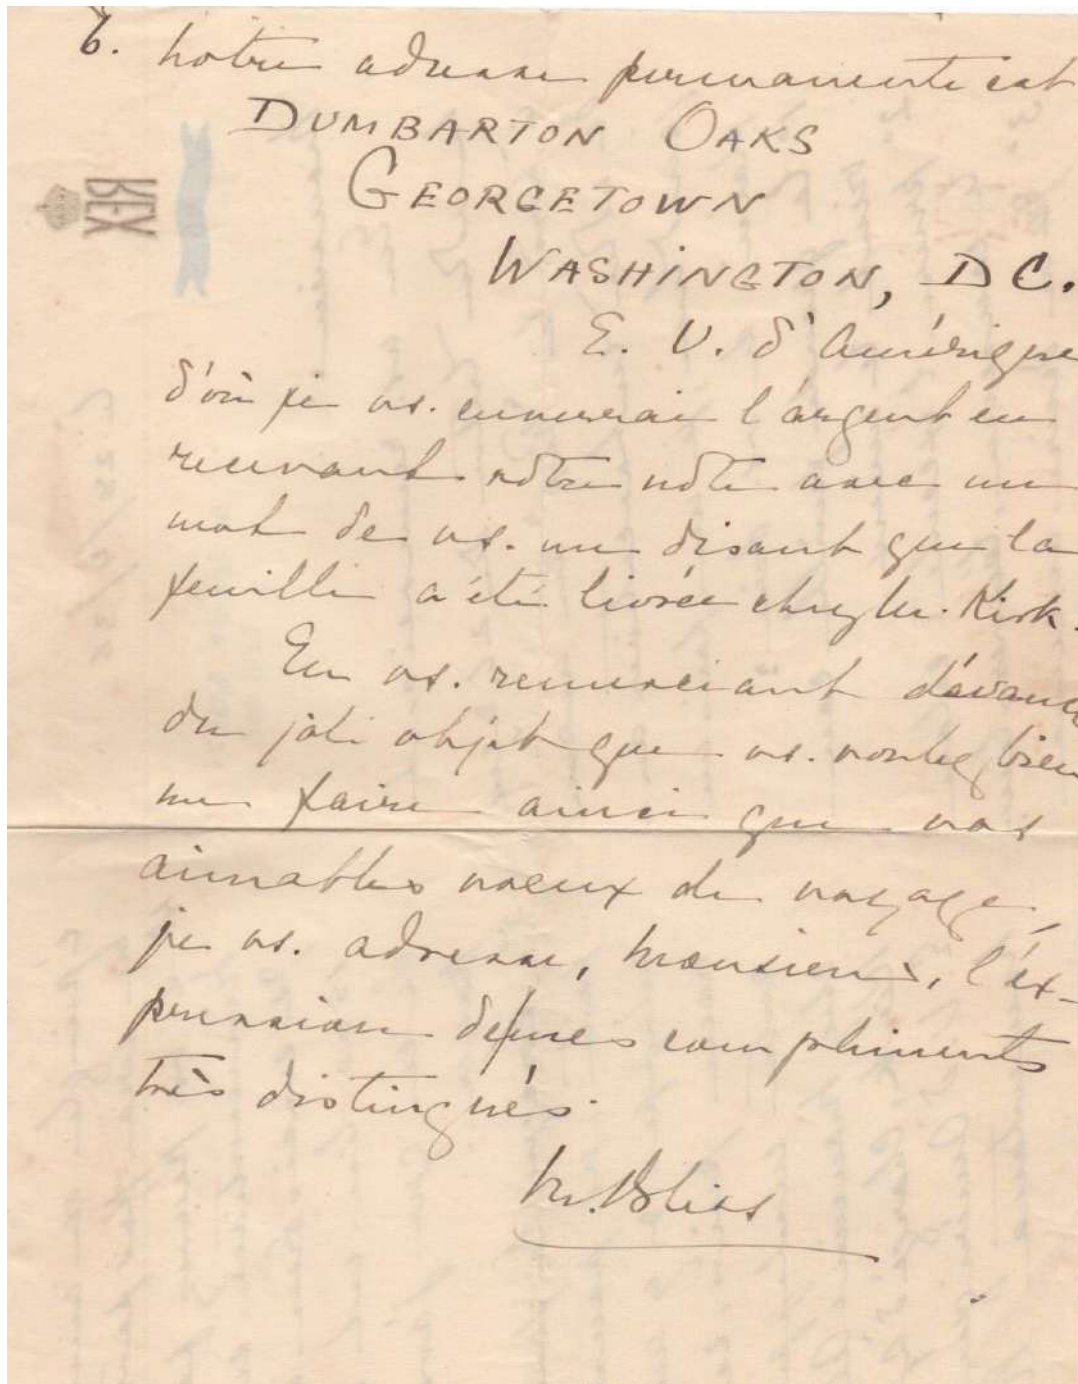 6. notre adresse permanente est
DUMBARTON OAKS
GEORGETOWN
WASHINGTON, D C.
E. U. d'Amérique
REX
d'où je vs. enverrai l'argent en
recevant vôtre nôte avec un
mot de vs. me disant que la
feuille a été livrée chez Mr. Kirk.
En vs. remerciant d'avance
du joli objet que vs. voulez bien
me faire ainsi que vos
aimables voeux de voyage,
je vs. adresse, Monsieur, l'ex-
pression de mes compliments
très distingués.
M. Bliss